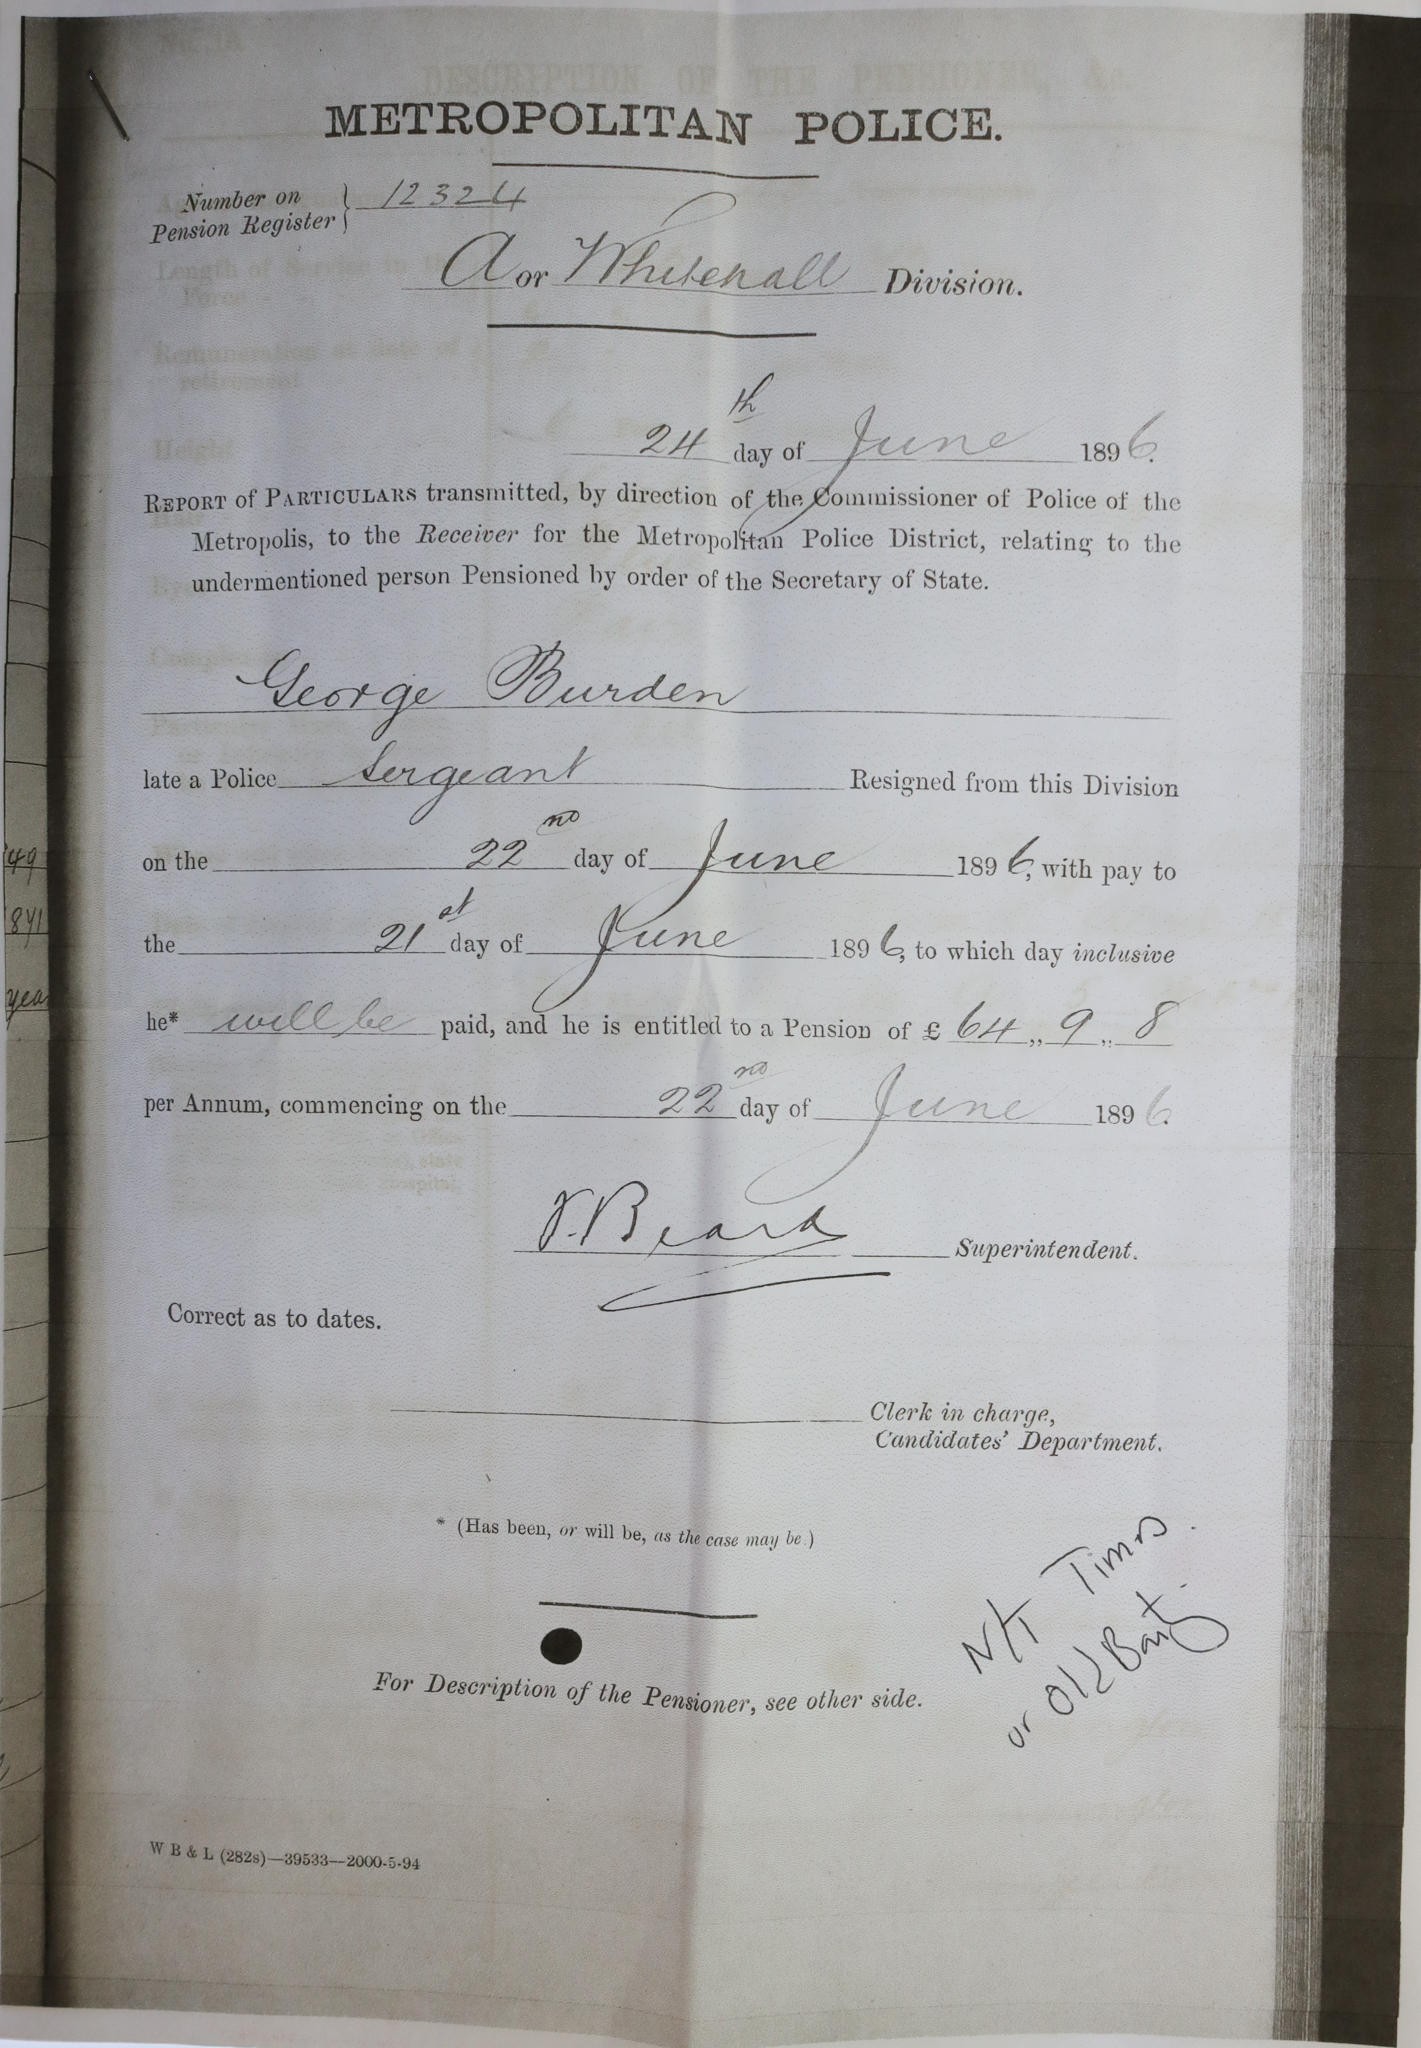 METROPOLITAN POLICE.
Number on Pension Register } 12324
A or Whitehall Division.
24th day of June 1896.
REPORT of PARTICULARS transmitted, by direction of the Commissioner of Police of the
Metropolis, to the Receiver for the Metropolitan Police District, relating to the
undermentioned person Pensioned by order of the Secretary of State.
George Burden
late a Police Sergeant Resigned from this Division
on the 22nd day of June 1896, with pay to
the 21st day of June 1896, to which day inclusive
he* will be paid, and he is entitled to a Pension of £ 64 ,, 9 ,, 8
per Annum, commencing on the 22nd day of June 1896.
Beard Superintendent.
Correct as to dates.
Clerk in charge,
Candidates' Department.
* (Has been, or will be, as the case may be.)
For Description of the Pensioner, see other side.
N/T Times.
or Old Bail
W B & L (282s)—39533—2000-5-94
DESCRIPTION OF THE PENSIONER, &c.
Length of Service in the
Force
Remuneration at date of
retirement
Height
49
841
yea